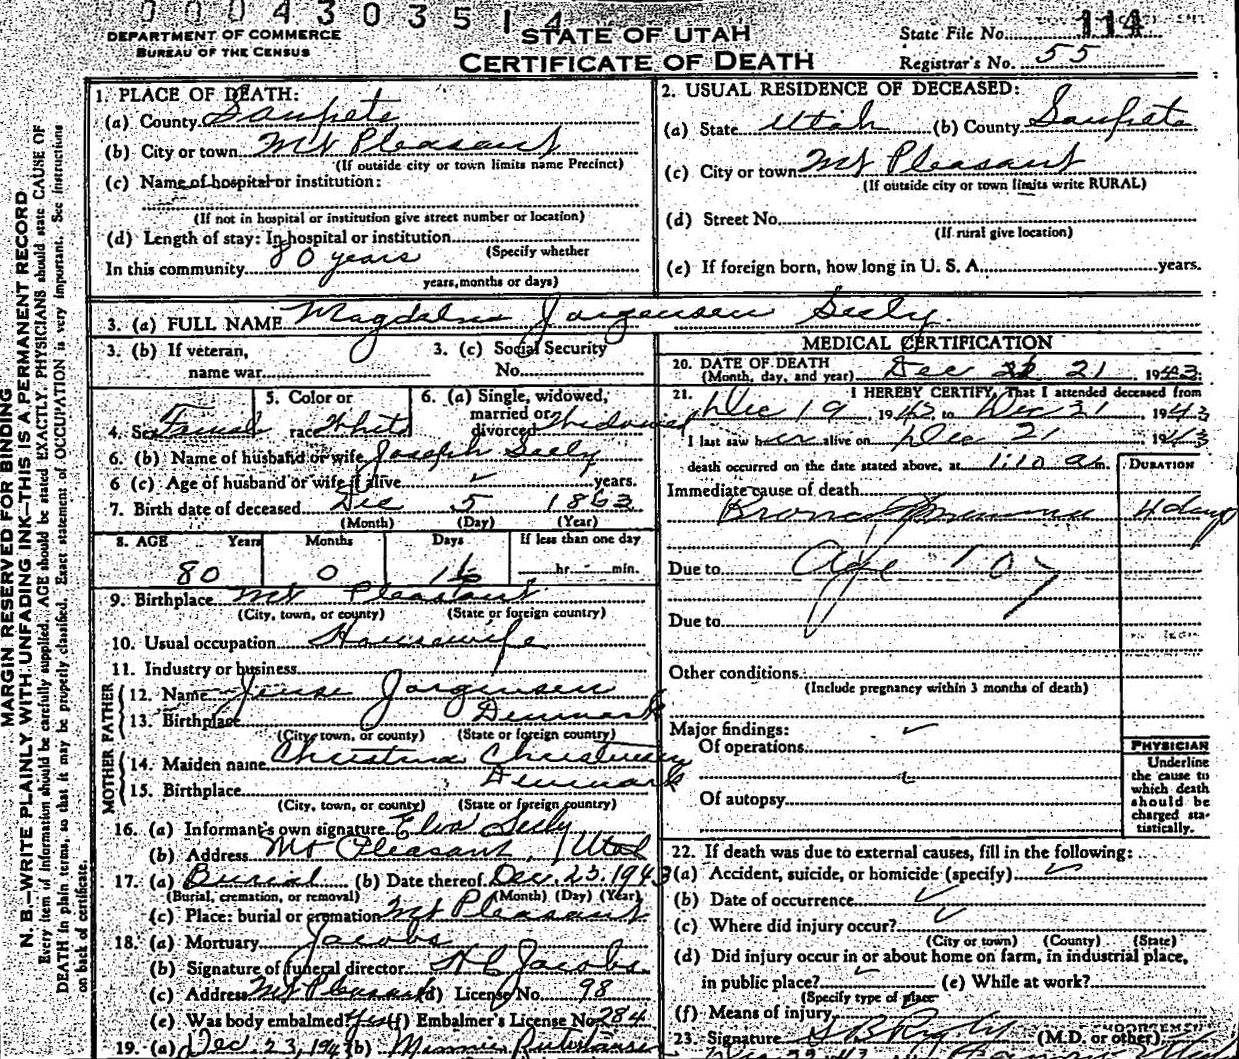 0 0 0 4 3 0 3 5 1 4
DEPARTMENT OF COMMERCE
BUREAU OF THE CENSUS
STATE OF UTAH
CERTIFICATE OF DEATH
State File No. 114
Registrar's No. 55
MARGIN RESERVED FOR BINDING
N. B.—WRITE PLAINLY, WITH UNFADING INK—THIS IS A PERMANENT RECORD
Every item of information should be carefully supplied. AGE should be stated EXACTLY. PHYSICIANS should state CAUSE OF
DEATH in plain terms, so that it may be properly classified. Exact statement of OCCUPATION is very important. See instructions
on back of certificate.
1. PLACE OF DEATH:
(a) County Sanpete
(b) City or town Mt Pleasant
(If outside city or town limits name Precinct)
(c) Name of hospital or institution:
(If not in hospital or institution give street number or location)
(d) Length of stay: In hospital or institution
(Specify whether
In this community 80 years
years, months or days)
2. USUAL RESIDENCE OF DECEASED:
(a) State Utah (b) County Sanpete
(c) City or town Mt Pleasant
(If outside city or town limits write RURAL)
(d) Street No.
(If rural give location)
(e) If foreign born, how long in U. S. A. years.
3. (a) FULL NAME Magdalena Jorgensen Seely
3. (b) If veteran,
name war
3. (c) Social Security
No.
4. Sex Female
5. Color or
race White
6. (a) Single, widowed,
married or
divorced Widowed
6. (b) Name of husband or wife Joseph Seely
6 (c) Age of husband or wife if alive years.
7. Birth date of deceased Dec 5 1863
(Month) (Day) (Year)
8. AGE Years Months Days If less than one day
80 0 16 hr. min.
9. Birthplace Mt Pleasant
(City, town, or county) (State or foreign country)
10. Usual occupation Housewife
11. Industry or business
FATHER
12. Name Jense Jorgensen
13. Birthplace Denmark
(City, town, or county) (State or foreign country)
MOTHER
14. Maiden name Christina Christensen
15. Birthplace Denmark
(City, town, or county) (State or foreign country)
16. (a) Informant's own signature Elva Seely
(b) Address Mt Pleasant, Utah
17. (a) Burial (b) Date thereof Dec. 23. 1943
(Burial, cremation, or removal) (Month) (Day) (Year)
(c) Place: burial or cremation Mt Pleasant
18. (a) Mortuary Jacobs
(b) Signature of funeral director H C Jacobs
(c) Address Mt Pleasant (d) License No. 98
(e) Was body embalmed? Yes (f) Embalmer's License No. 284
19. (a) Dec. 23, 1943 (b) Minnie
MEDICAL CERTIFICATION
20. DATE OF DEATH
(Month, day, and year) Dec 21 1943
21. I HEREBY CERTIFY, That I attended deceased from
Dec 19, 1943 to Dec 21 1943
I last saw her alive on Dec 21 1943
death occurred on the date stated above, at 1:10 a m.
DURATION
Immediate cause of death
Bronco Pneumonia 4 days
Due to Age
Due to
Other conditions
(Include pregnancy within 3 months of death)
Major findings:
Of operations
Of autopsy
PHYSICIAN
Underline
the cause to
which death
should be
charged sta-
tistically.
22. If death was due to external causes, fill in the following:
(a) Accident, suicide, or homicide (specify)
(b) Date of occurrence
(c) Where did injury occur?
(City or town) (County) (State)
(d) Did injury occur in or about home on farm, in industrial place,
in public place? (e) While at work?
(Specify type of place)
(f) Means of injury
23. Signature (M.D. or other)